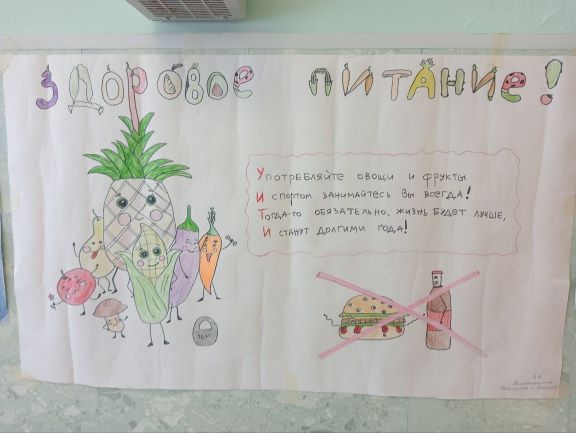 ЗДОРОВОЕ ПИТАНИЕ!
Употребляйте овощи и фрукты
И спортом занимайтесь Вы всегда!
Тогда-то обязательно, жизнь будет лучше,
И станут долгими года!